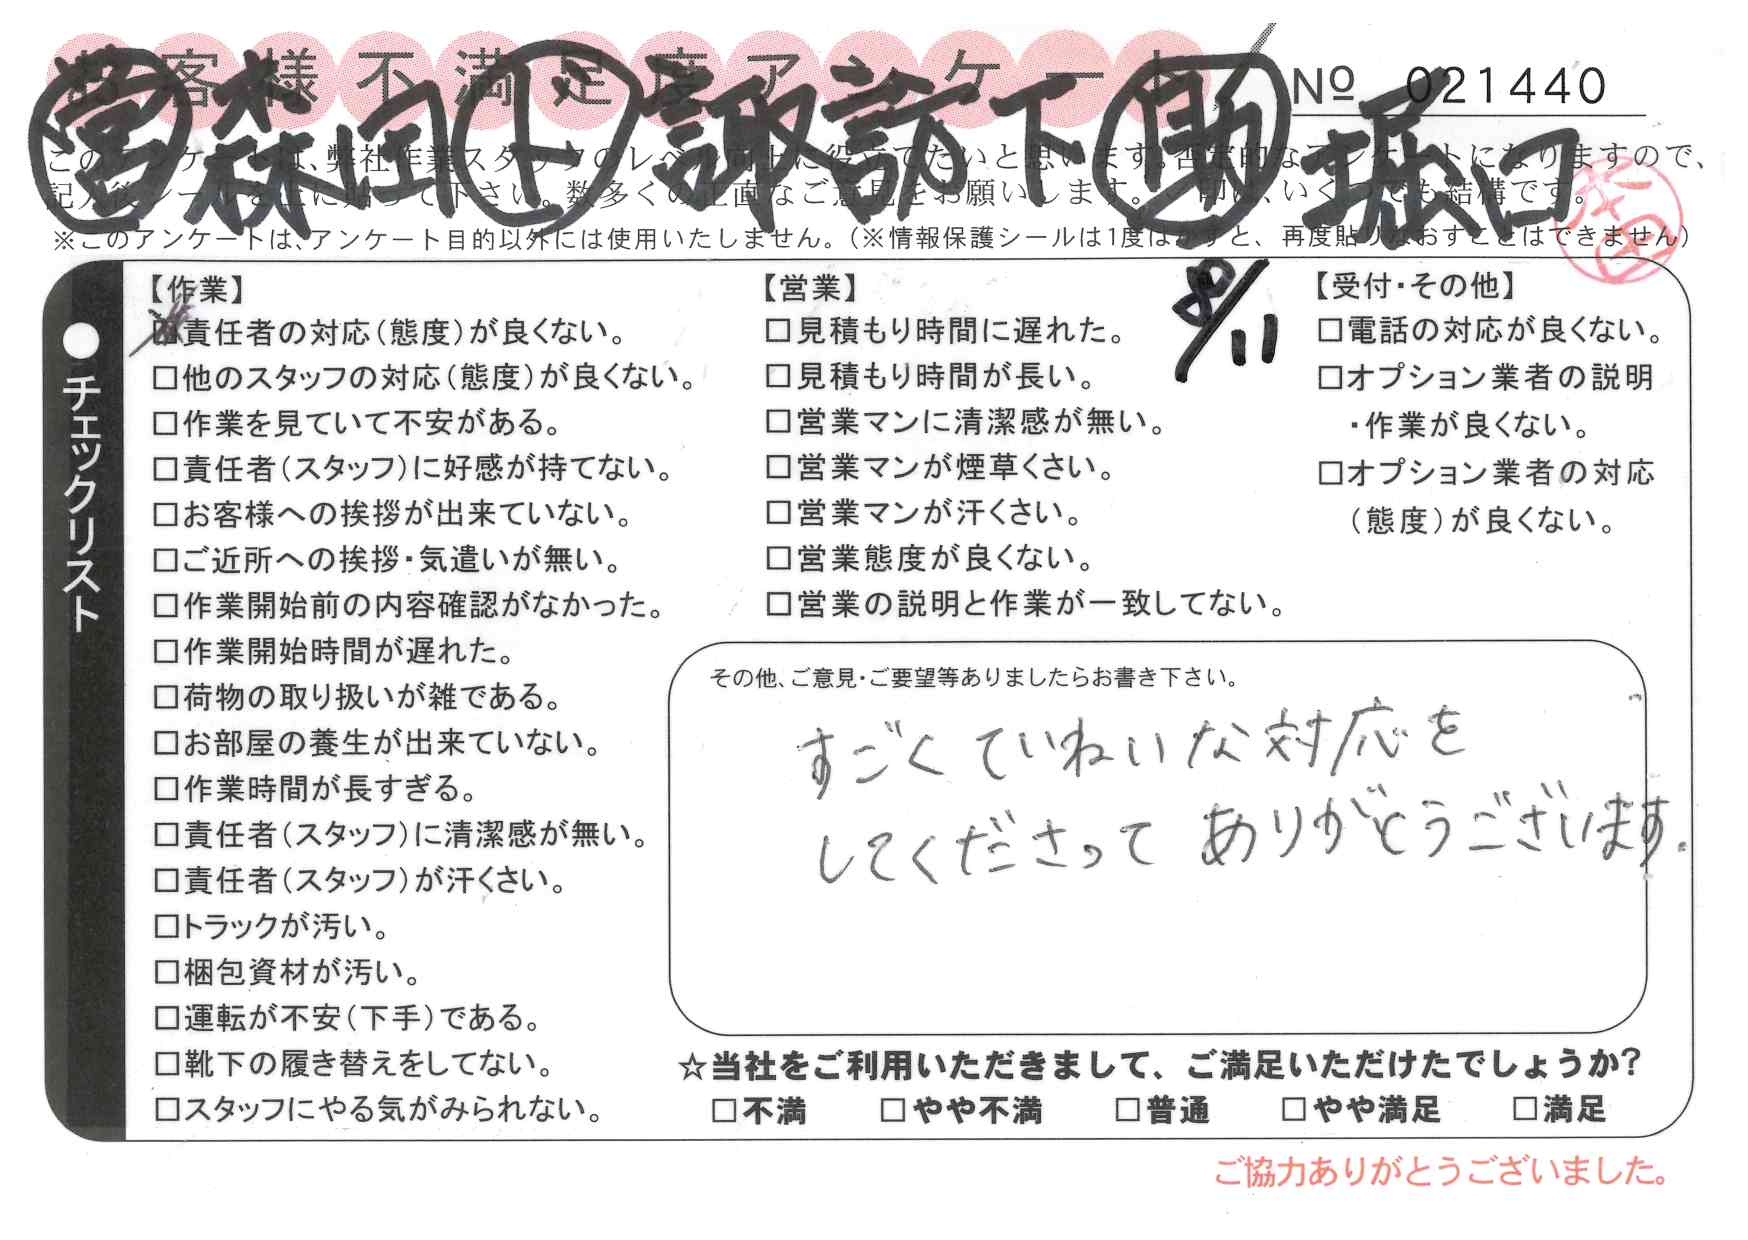 お客様不満足度アンケート
№ 021440
営 森向 ト 諏訪下 助 堀口
このアンケートは、弊社作業スタッフのレベル向上に役立てたいと思います。否定的なアンケートになりますので、
記入後シールを上に貼って下さい。数多くの正直なご意見をお願いします。✓印は、いくつでも結構です。
※このアンケートは、アンケート目的以外には使用いたしません。(※情報保護シールは1度はがすと、再度貼りなおすことはできません)
8/11
●チェックリスト
【作業】
□責任者の対応(態度)が良くない。
□他のスタッフの対応(態度)が良くない。
□作業を見ていて不安がある。
□責任者(スタッフ)に好感が持てない。
□お客様への挨拶が出来ていない。
□ご近所への挨拶・気遣いが無い。
□作業開始前の内容確認がなかった。
□作業開始時間が遅れた。
□荷物の取り扱いが雑である。
□お部屋の養生が出来ていない。
□作業時間が長すぎる。
□責任者(スタッフ)に清潔感が無い。
□責任者(スタッフ)が汗くさい。
□トラックが汚い。
□梱包資材が汚い。
□運転が不安(下手)である。
□靴下の履き替えをしてない。
□スタッフにやる気がみられない。
【営業】
□見積もり時間に遅れた。
□見積もり時間が長い。
□営業マンに清潔感が無い。
□営業マンが煙草くさい。
□営業マンが汗くさい。
□営業態度が良くない。
□営業の説明と作業が一致してない。
【受付・その他】
□電話の対応が良くない。
□オプション業者の説明
・作業が良くない。
□オプション業者の対応
(態度)が良くない。
その他、ご意見・ご要望等ありましたらお書き下さい。
すごくていねいな対応を
してくださって ありがとうございます。
☆当社をご利用いただきまして、ご満足いただけたでしょうか?
□不満 □やや不満 □普通 □やや満足 □満足
ご協力ありがとうございました。